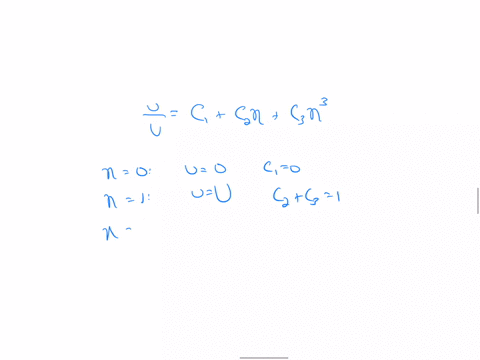 u/U = C₁ + C₂η + C₃η³
η = 0: u = 0 C₁ = 0
η = 1: u = U C₂ + C₃ = 1
η =